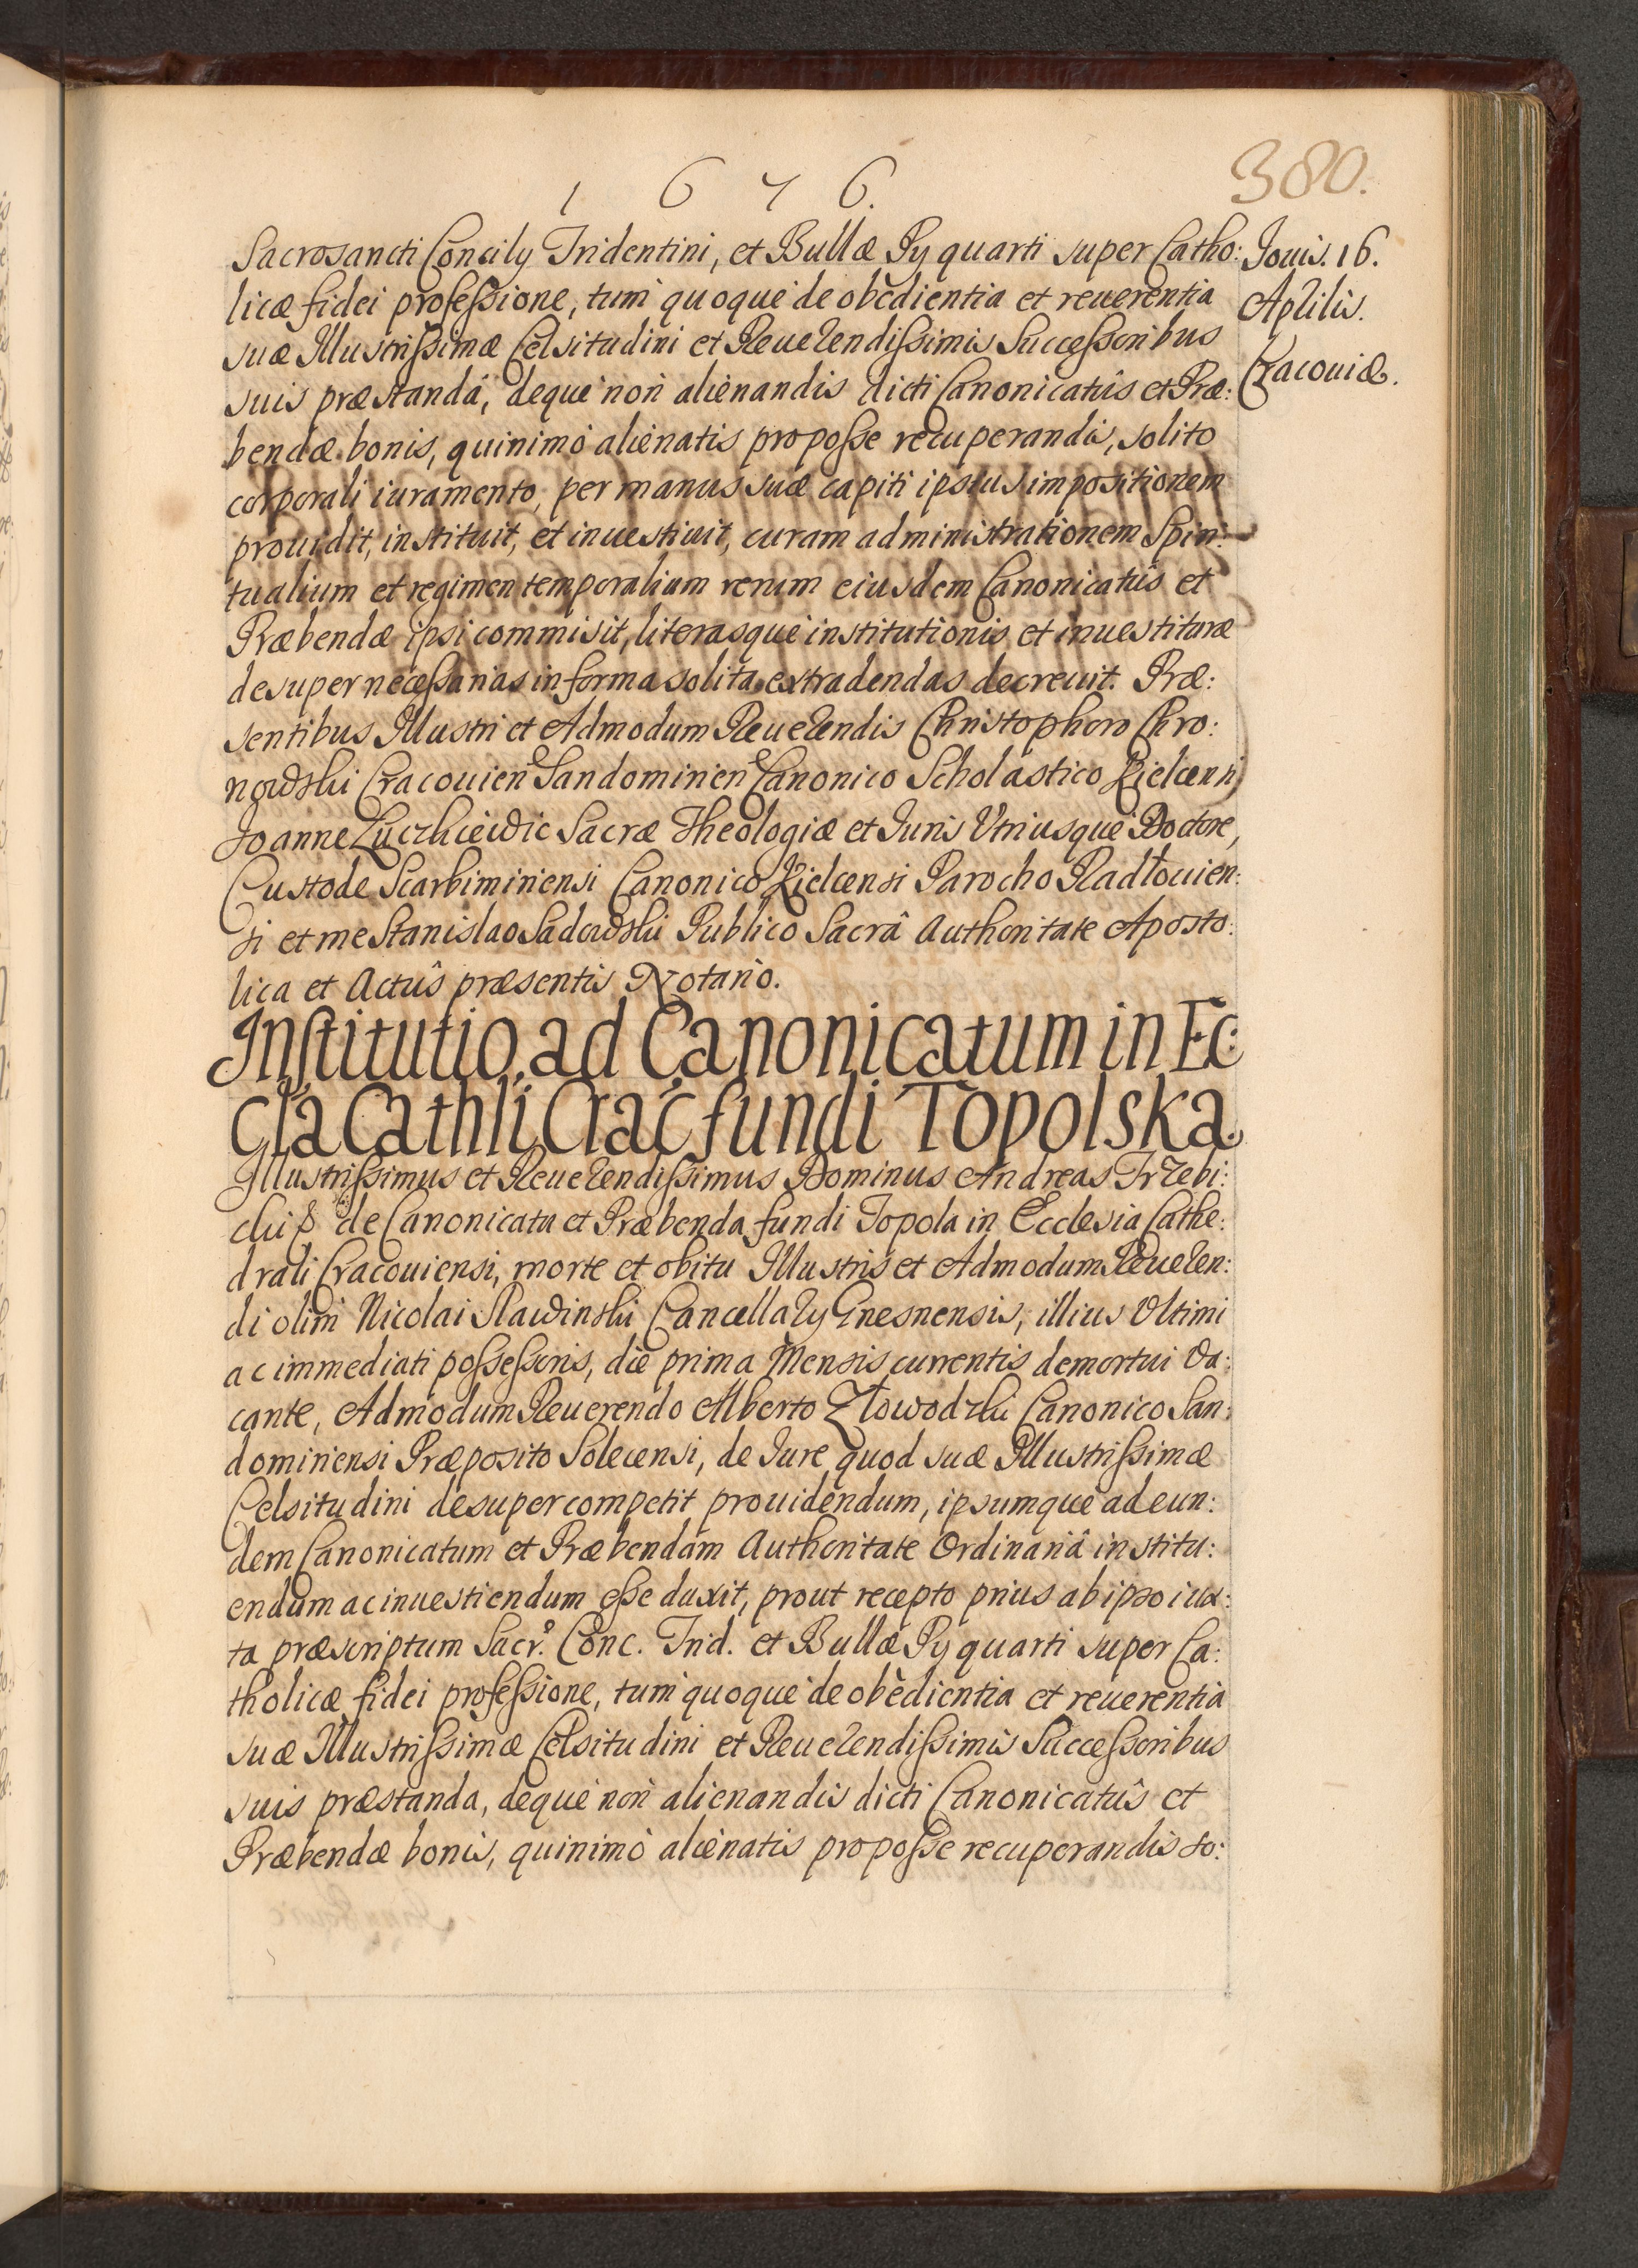 1676.
380.
Sacrosancti Concily Tridentini, et Bullæ Py quarti super Catho:
Jouis. 16.
licæ fidei professione, tum quoque de obedientia et reuerentia
Aprilis.
suæ Illustrissimæ Celsitudini et Reuerendissimis Successoribus
Cracouiæ.
suis præstanda, deque non alienandis dicti Canonicatûs et Præ:
bendæ bonis, quinimò alienatis pro posse recuperandis, solito
corporali iuramento, per manus suæ capiti ipsius impositionem
prouidit, instituit, et inuestiuit, curam administrationem Spiri:
tualium et regimen temporalium rerum eiusdem Canonicatûs et
Præbendæ ipsi commisit, literasque institutionis et inuestituræ
desuper necessarias in forma solita extradendas decreuit. Præ:
sentibus Illustri et Admodum Reuerendis Christophoro Chro:
nowski Cracouien Sandomirien Canonico Scholastico Kielcensi
Joanne Łuczkiewic Sacræ Theologiæ et Juris Vtriusque Doctore,
Custode Scarbimiriensi Canonico Kielcensi Parocho Radłouien:
si et me Stanislao Sadowski Publico Sacrâ Authoritate Aposto:
lica et Actûs præsentis Notario.
Institutio ad Canonicatum in Ec:
cla Cathli Crac fundi Topolska.
Illustrissimus et Reuerendissimus Dominus Andreas Trzebi:
cki de Canonicatu et Præbenda fundi Topola in Ecclesia Cathe:
drali Cracouiensi, morte et obitu Illustris et Admodum Reueren:
di olim Nicolai Sławinski Cancellary Gnesnensis, illius Vltimi
ac immediati possessoris, die prima Mensis currentis demortui Va:
cante, Admodum Reuerendo Alberto Złowodzki Canonico San:
domiriensi Præposito Solecensi, de Jure quod suæ Illustrissimæ
Celsitudini desuper competit prouidendum, ipsumque ad eun:
dem Canonicatum et Præbendam Authoritate Ordinariâ institu:
endum ac inuestiendum esse duxit, prout recepto prius ab ipso iux:
ta præscriptum Sacr. Conc. Trid. et Bullæ Py quarti super Ca:
tholicæ fidei professione, tum quoque de obedientia et reuerentia
suæ Illustrissimæ Celsitudini et Reuerendissimis Successoribus
suis præstanda, deque non alienandis dicti Canonicatûs et
Præbendæ bonis, quinimò alienatis pro posse recuperandis so: